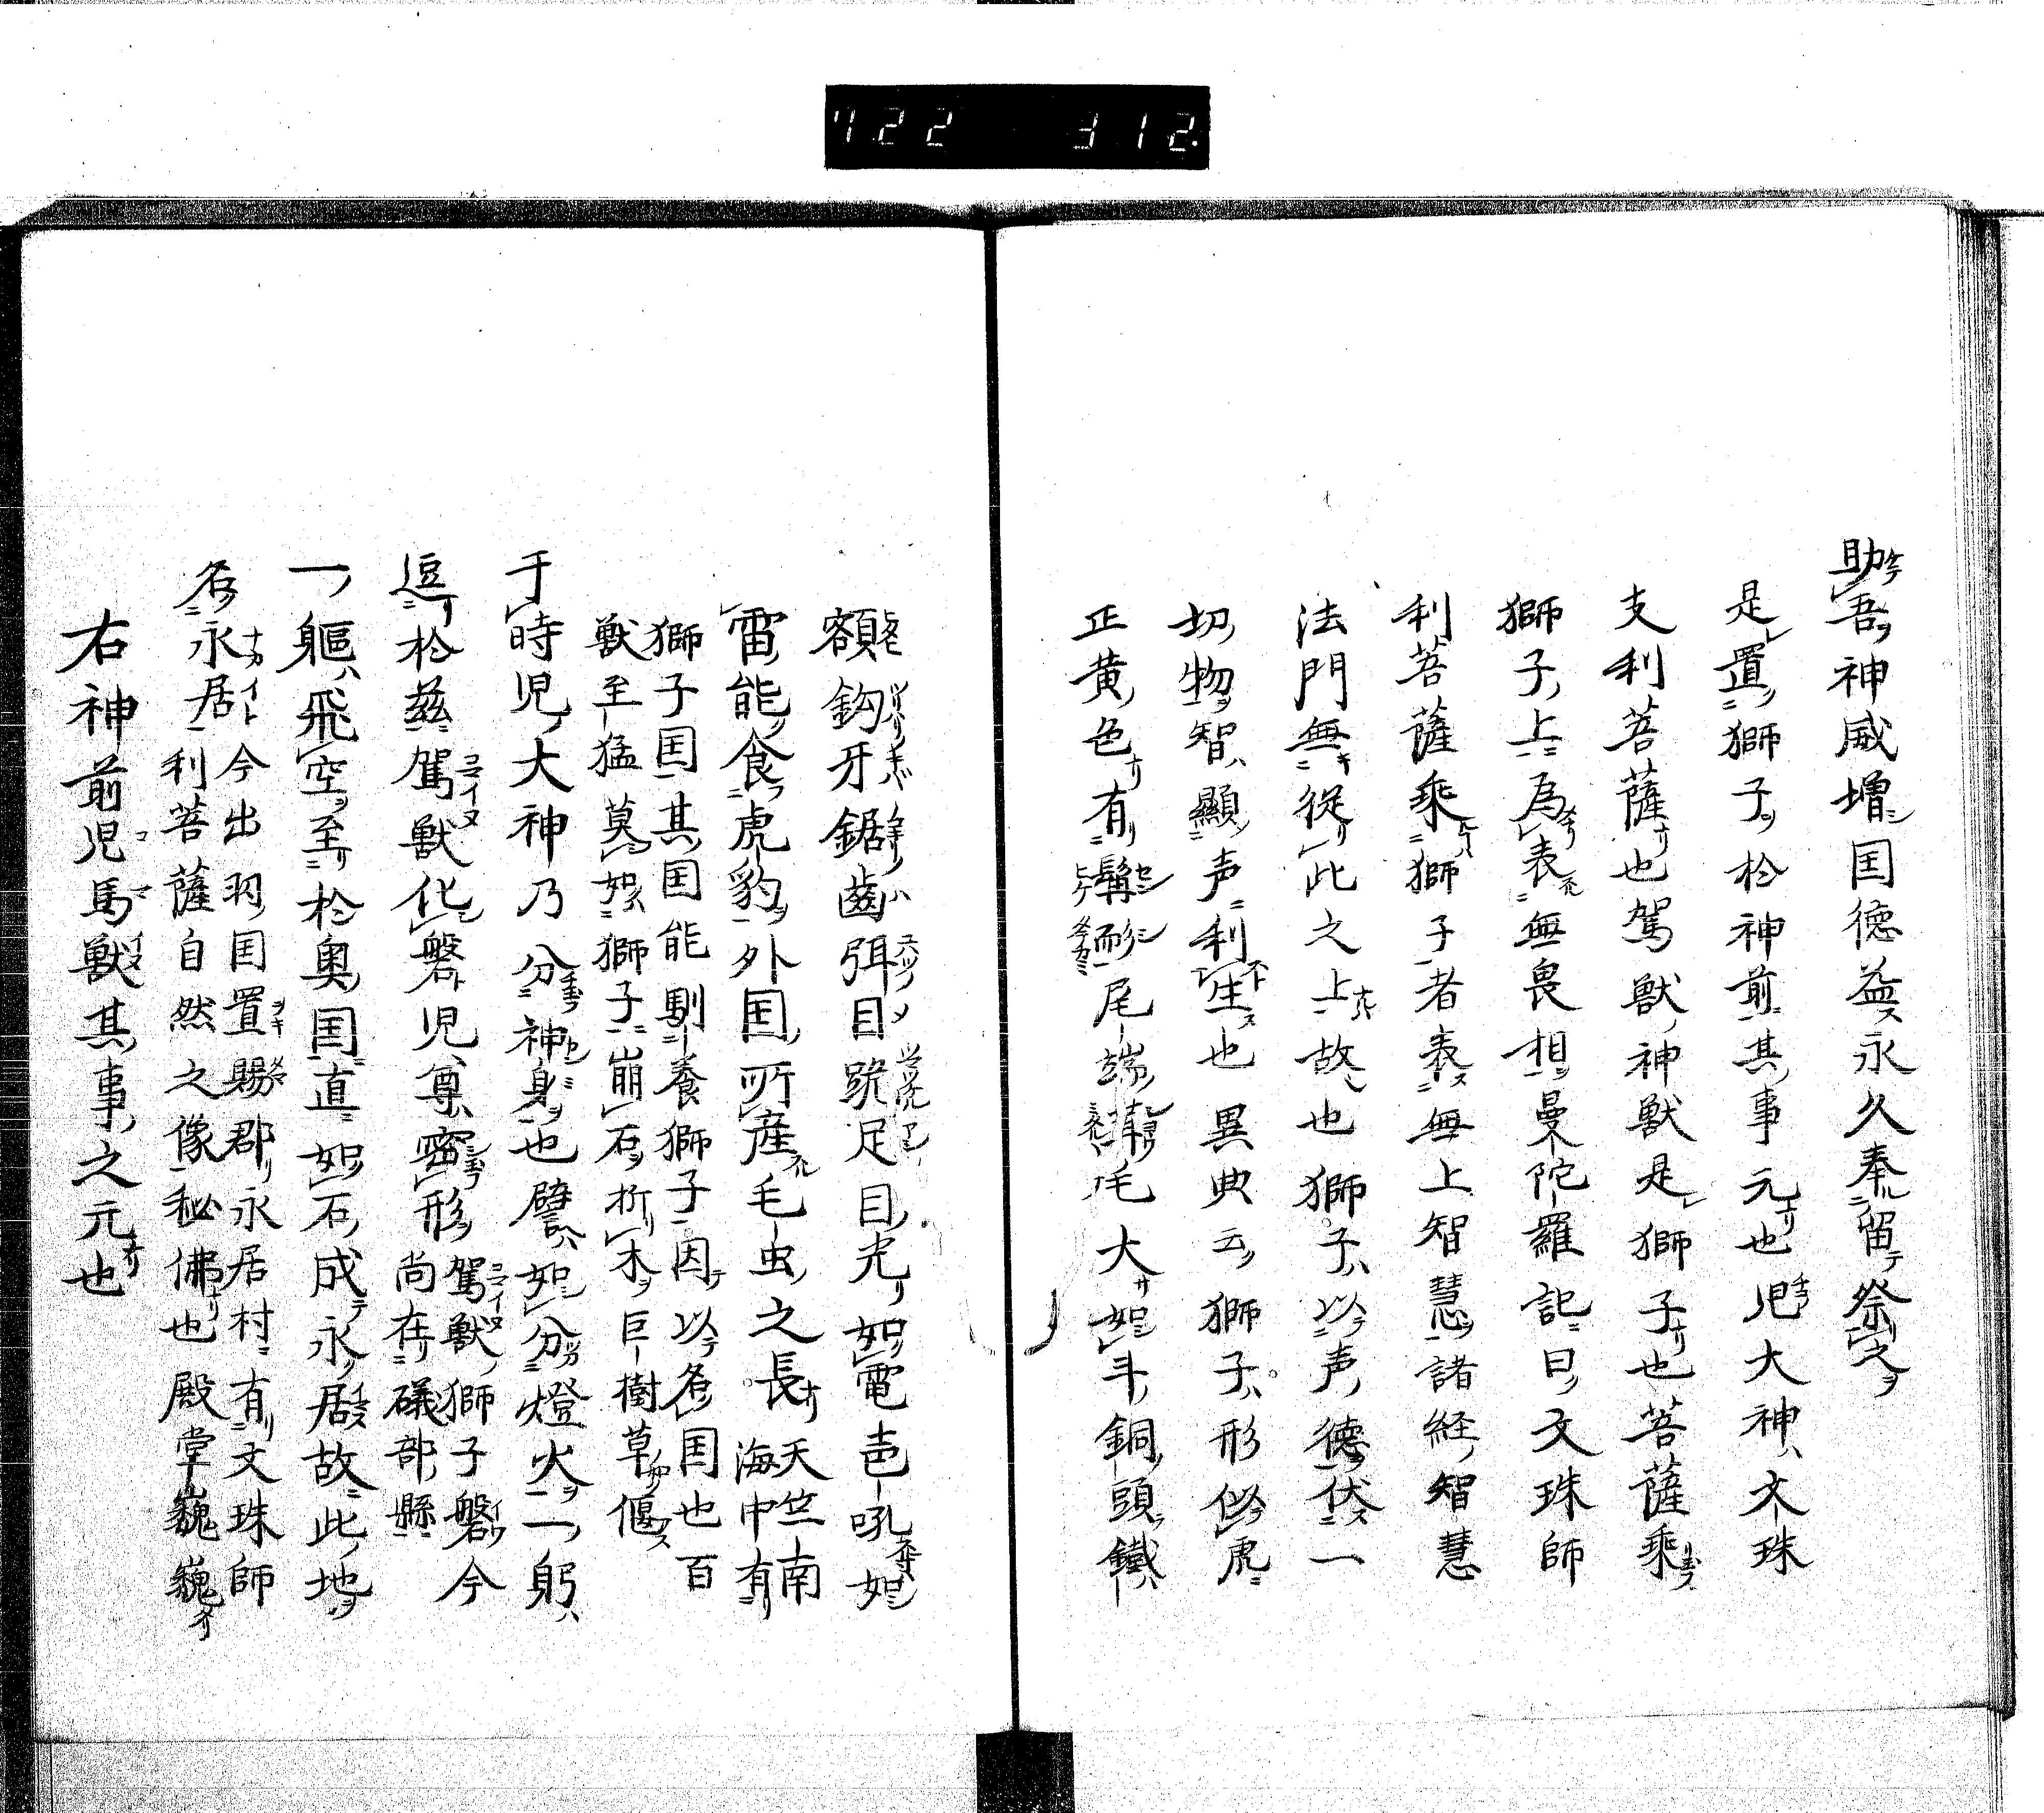 722 312
助吾神威増国徳益永久奉留祭之
是置獅子於神前其事元也児大神文珠
支利菩薩也駕獣神獣是獅子也菩薩乘
獅子上為表無畏相曼陀羅記曰文珠師
利菩薩乘獅子者表無上智慧諸経智慧
法門無従此之上故也獅子以声徳伏一
切物智顯声利生也異典云獅子形似虎
正黄色有髯耏尾端茸毛大如斗銅頭鐵
額鈎牙鋸齒弭目跪足目光如電声吼如
雷能食虎豹外国所産毛虫之長天竺南
海中有
獅子国其国能馴養獅子因以名国也百
獣至猛莫如獅子崩石折木巨樹草偃
于時児大神乃分神身也譬如分燈火一躬
逗於玆駕獣化磐児尊密形駕獣獅子磐今
尚在礒部縣
一軀飛空至於奥国直如石成永居故此地
名永居今出羽国置賜郡永居村有文珠師
利菩薩自然之像秘佛也殿堂巍巍
右神前児馬獣其事之元也